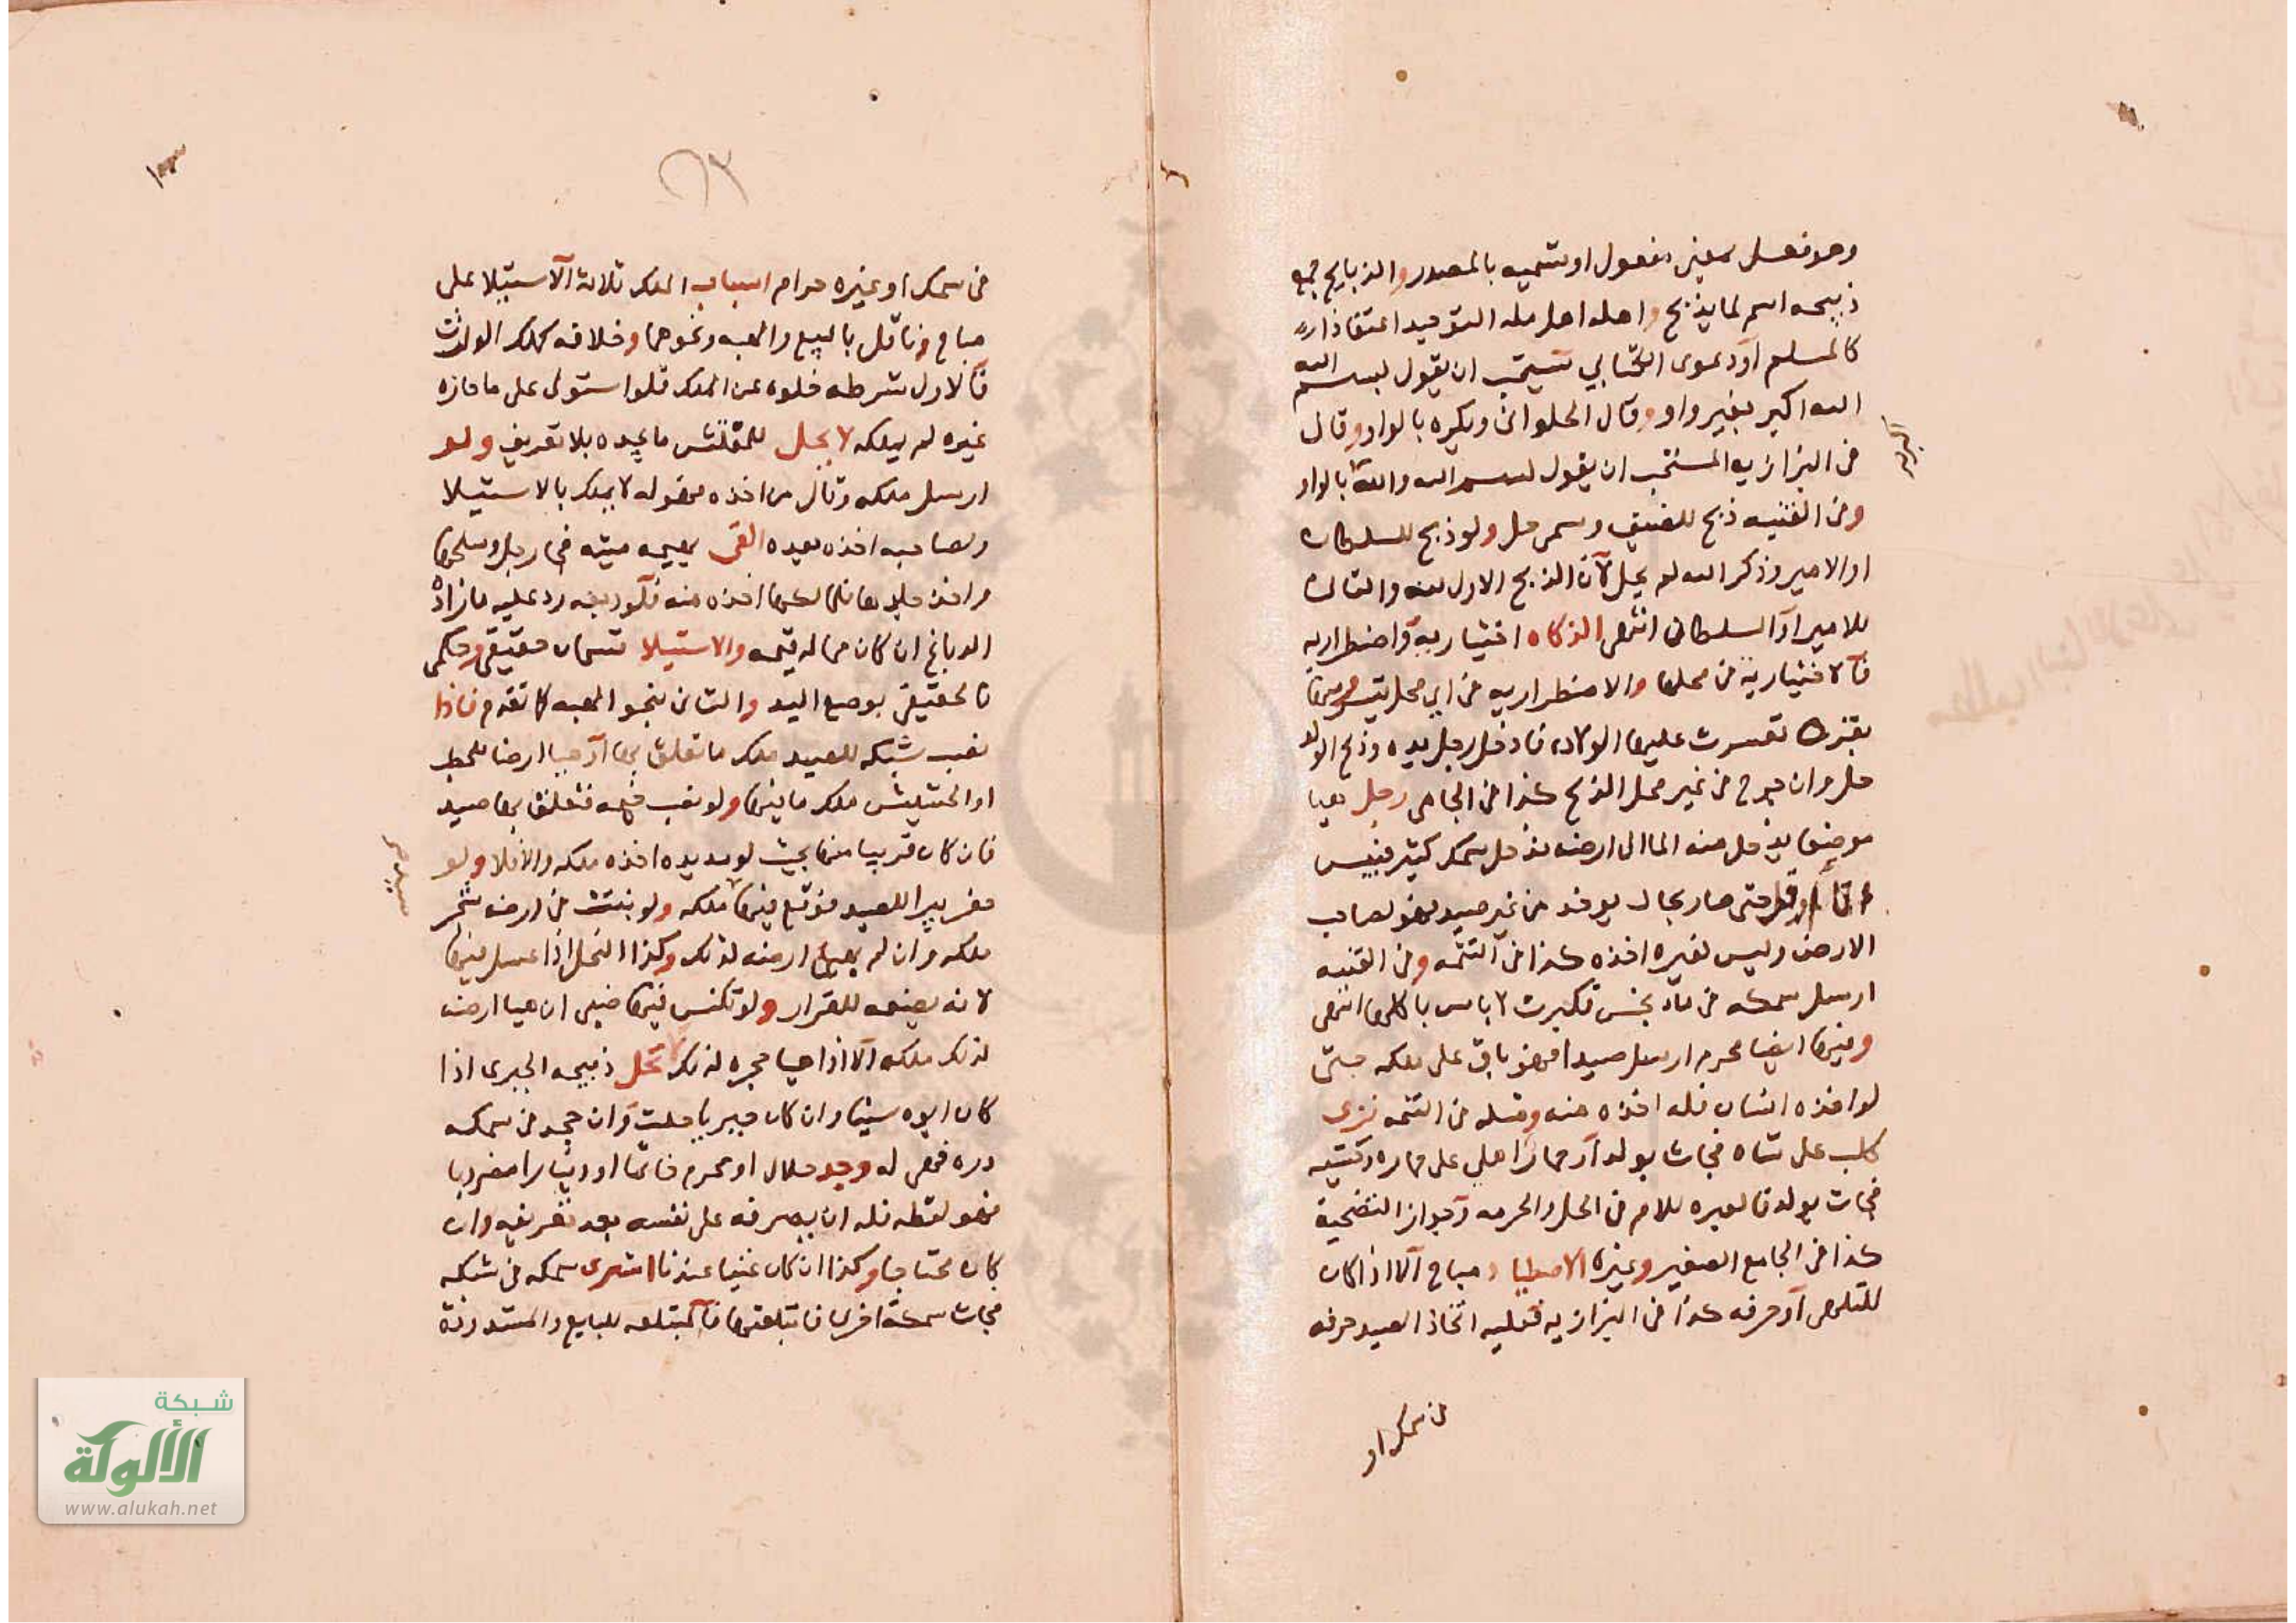 وهو فعل بمعنى مفعول او تسميه بالمصدر والذبايح جمع
ذبيحه اسم لما يذبح واهله اهل مله التوحيد اعتقادا
كالمسلم او دعوى الكتابي يستحب ان يقول بسم الله
الله اكبر بغير واو وقال الحلواني ويكره بالواو وقال
في البزازيه المستحب ان يقول بسم الله والله بالواو
اكبر
وفي القنيه ذبح للضيف وسمى حل ولو ذبح للسلطان
او الامير وذكر الله لم يحل لان الذبح الاول لله والثاني
للامير او السلطان انتهى الذكاه اختياريه واضطراريه
فالاختياريه في محلها والاضطراريه في اي محل تيسر
بقره تعسرت عليها الولاده فادخل رجل يده وذبح الولد
حل وان جرح في غير محل الذبح كذا في الجامع رجل هيا
موضعا يدخل منه الما الى ارضه فدخل سمك كثير فيبس
حتى صار بحال يوخذ من غير صيد فهو لصاحب
الارض وليس لغيره اخذه كذا في التتمه وفي القنيه
ارسل سمكه في ماء نجس فكبرت لا باس باكلها انتهى
وفيها ايضا محرم ارسل صيدا فهو باق على ملكه حتى
لو اخذه انسان فله اخذه منه ومثله في التتمه نزى
كلب على شاه فجات بولد او حمار اهلي على حماره وحشيه
فجات بولد فالعبره للام في الحل والحرمه وجواز التضحية
كذا في الجامع الصغير وغيره الاصطياد مباح الا اذا كان
للتلهي او حرفه كذا في البزازيه فعليه اتخاذ الصيد حرفه
من سمك او
من سمك او غيره حرام اسباب الملك ثلاثه الاستيلا على
مباح وناقل بالبيع والهبه ونحوهما وخلافه كملك الوارث
فالاول شرطه خلوه عن الملك فلو استولى على ما حازه
غيره لم يملكه لا يحل للمفتش ما يجده بلا تعريف ولو
ارسل ملكه وقال من اخذه فهو له لا يملك بالاستيلا
ولصاحبه اخذه بعده القى بهيمه ميته فجا رجل وسلخها
واخذ جلدها فلمالكها اخذه منه فلو دبغه رد عليه ما زاد
الدباغ ان كان مما له قيمه والاستيلا قسمان حقيقي وحكمي
فالحقيقي بوضع اليد والثاني بنحو الهبه كما تقدم فاذا
نصب شبكه للصيد ملك ما تعلق بها او هيا ارضا للحطب
او الحشيش ملك ما فيها ولو نصب فتعلق بها صيد
فان كان قريبا منها بحيث لو مد يده اخذه ملكه والا فلا ولو
حفر بيرا للصيد فوقع فيها ملكه ولو نبتت في ارضه شجر
ملكه وان لم يهيا ارضه لذلك وكذا النحل اذا عسل فيها
لانه يضعه للقرار ولو تكنس فيها ظبي ان هيا ارضه
لذلك ملكه الا اذا هيا حجره لذلك لا تحل ذبيحه الجبري اذا
كان ابوه سنيا وان كان جبريا حلت وان وجد في سمكه
دره فهي له وجد حلال او محرم خاتما او دينارا مضروبا
فهو لقطه فله ان يصرفه على نفسه بعد تعريفه وان
كان محتاجا وكذا ان كان غنيا عندنا اشترى سمكه في شبكه
فجات سمكة اخرى فابتلعتها فالمبتلعه للبايع والمشدودة
شبكة
الألوكة
www.alukah.net